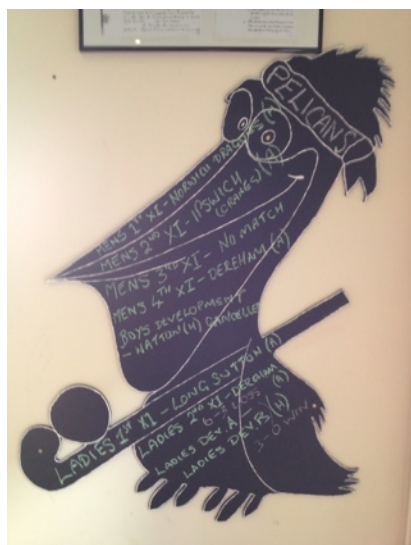 PELICANS!
MENS 1ST XI - NORWICH DRAGONS (A)
MENS 2ND XI - IPSWICH (A)
(CRANES)
MENS 3RD XI - NO MATCH
MENS 4TH XI - DEREHAM (A)
BOYS DEVELOPMENT
- (H) CANCELLED
LADIES 1ST XI - LONG SUTTON (A)
LADIES 2ND XI - DEREHAM (A)
LOSS
LADIES DEV. A
LADIES DEV. B (H)
3-0 WIN